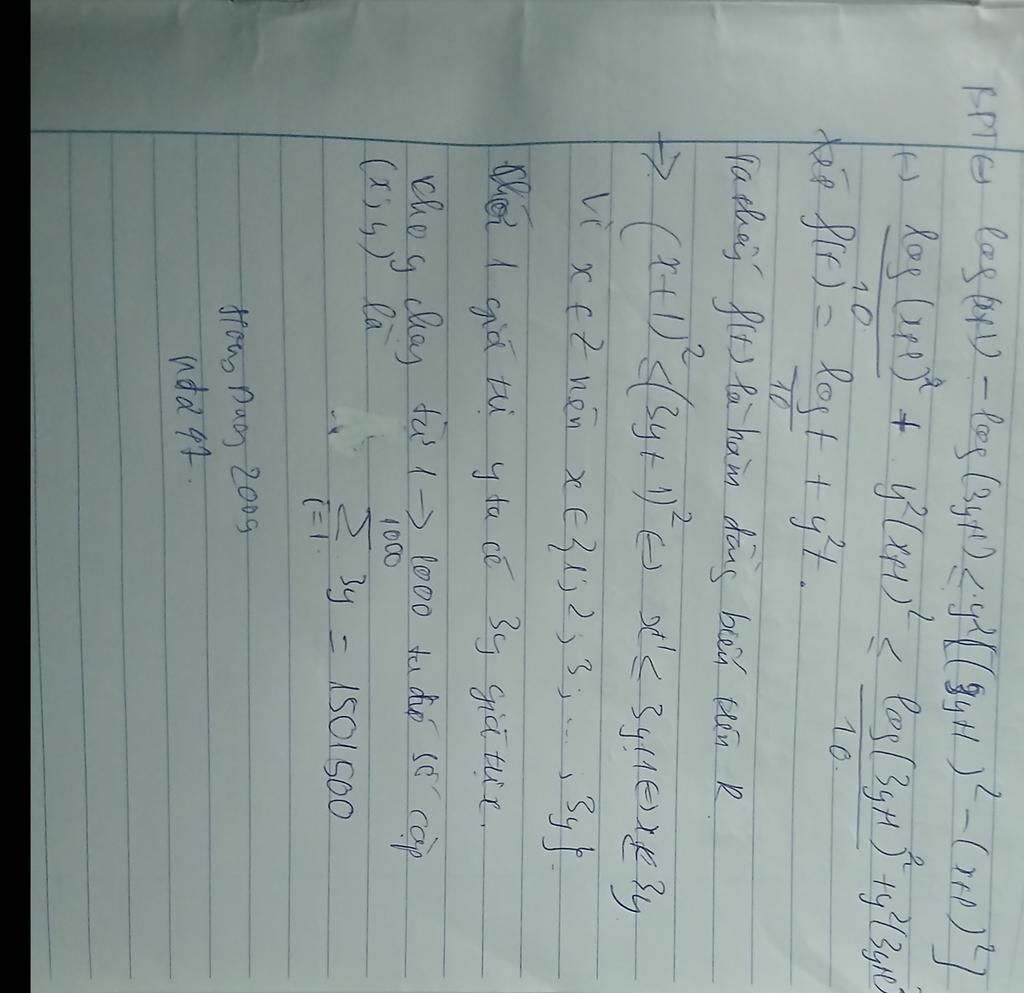 BPT ⇔ log(x+1) - log(3y+1) ≤ y²[(3y+1)² - (x+1)²]
⇔ log₁₀(x+1)² + y²(x+1)² ≤ log₁₀(3y+1)² + y²(3y+1)²
Xét f(t) = log₁₀t + y²t.
Ta thấy f(t) là hàm đồng biến trên R
→ (x+1)² ≤ (3y+1)² ⇔ x+1 ≤ 3y+1 ⇔ x ≤ 3y
Vì x ∈ Z nên x ∈ {1; 2; 3; ...; 3y}.
Với 1 giá trị y ta có 3y giá trị x.
Cho y chạy từ 1 → 1000 ta đc số cặp
(x; y) là
1000
Σ 3y = 1501500
i=1.
2009